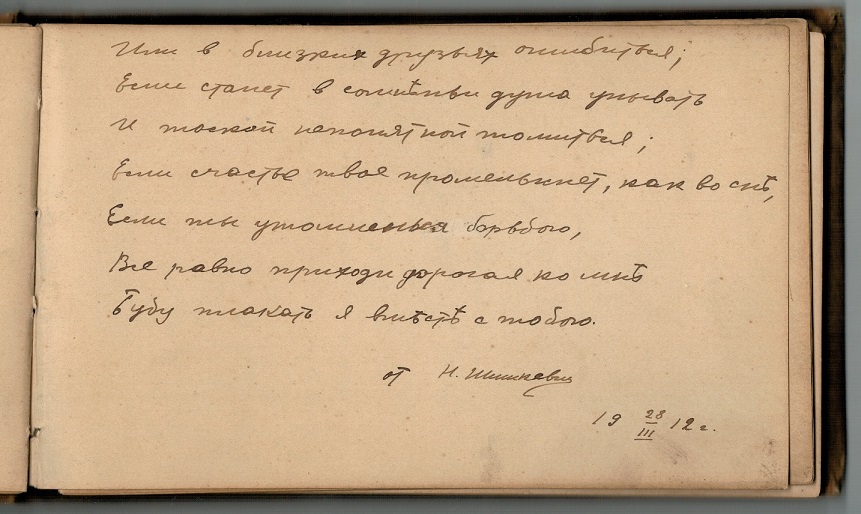 Или в близких друзьях ошибиться;
Если станет в сомнѣньи душа унывать
И тоской непонятной томиться;
Если счастье твое промелькнет, как во снѣ,
Если ты утомишься борьбою,
Все равно приходи дорогая ко мнѣ
Буду плакать я вмѣстѣ с тобою.
от Н. Шишкевич
19 28/III 12 г.